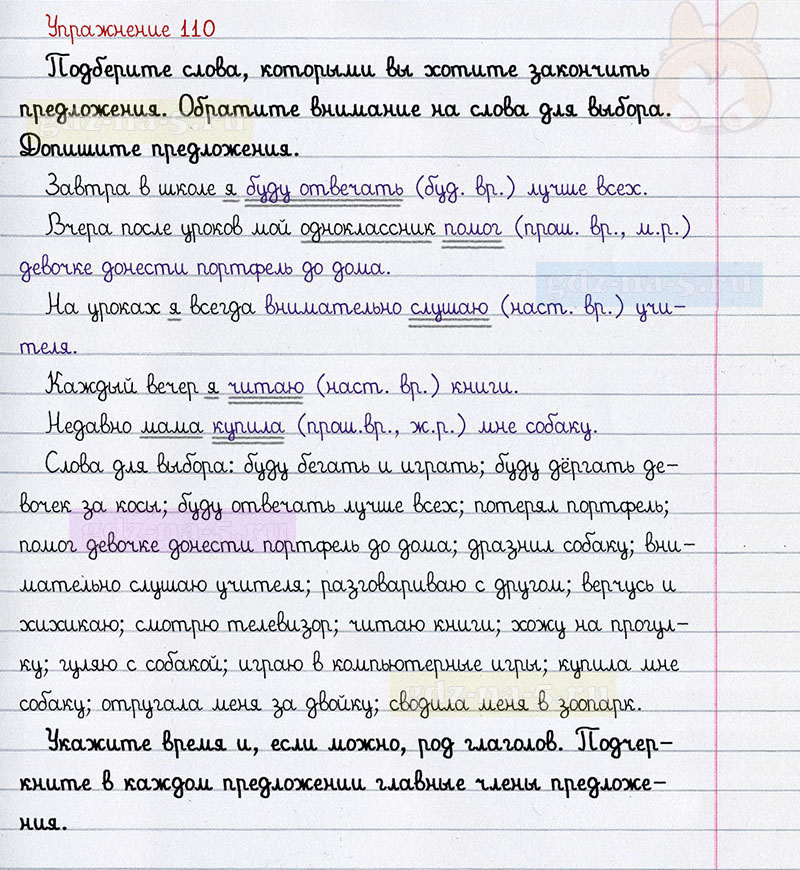 Упражнение 110
Подберите слова, которыми вы хотите закончить
предложения. Обратите внимание на слова для выбора.
Допишите предложения.
Завтра в школе я буду отвечать (буд. вр.) лучше всех.
Вчера после уроков мой одноклассник помог (прош. вр., м.р.)
девочке донести портфель до дома.
gdz-na-5.ru
На уроках я всегда внимательно слушаю (наст. вр.) учи-
теля.
Каждый вечер я читаю (наст. вр.) книги.
Недавно мама купила (прош.вр., ж.р.) мне собаку.
Слова для выбора: буду бегать и играть; буду дёргать де-
вочек за косы; буду отвечать лучше всех; потерял портфель;
gdz-na-5.ru
помог девочке донести портфель до дома; дразнил собаку; вни-
мательно слушаю учителя; разговариваю с другом; верчусь и
хихикаю; смотрю телевизор; читаю книги; хожу на прогул-
ку; гуляю с собакой; играю в компьютерные игры; купила мне
gdz-na-5.ru
собаку; отругала меня за двойку; сводила меня в зоопарк.
Укажите время и, если можно, род глаголов. Подчер-
кните в каждом предложении главные члены предложе-
ния.